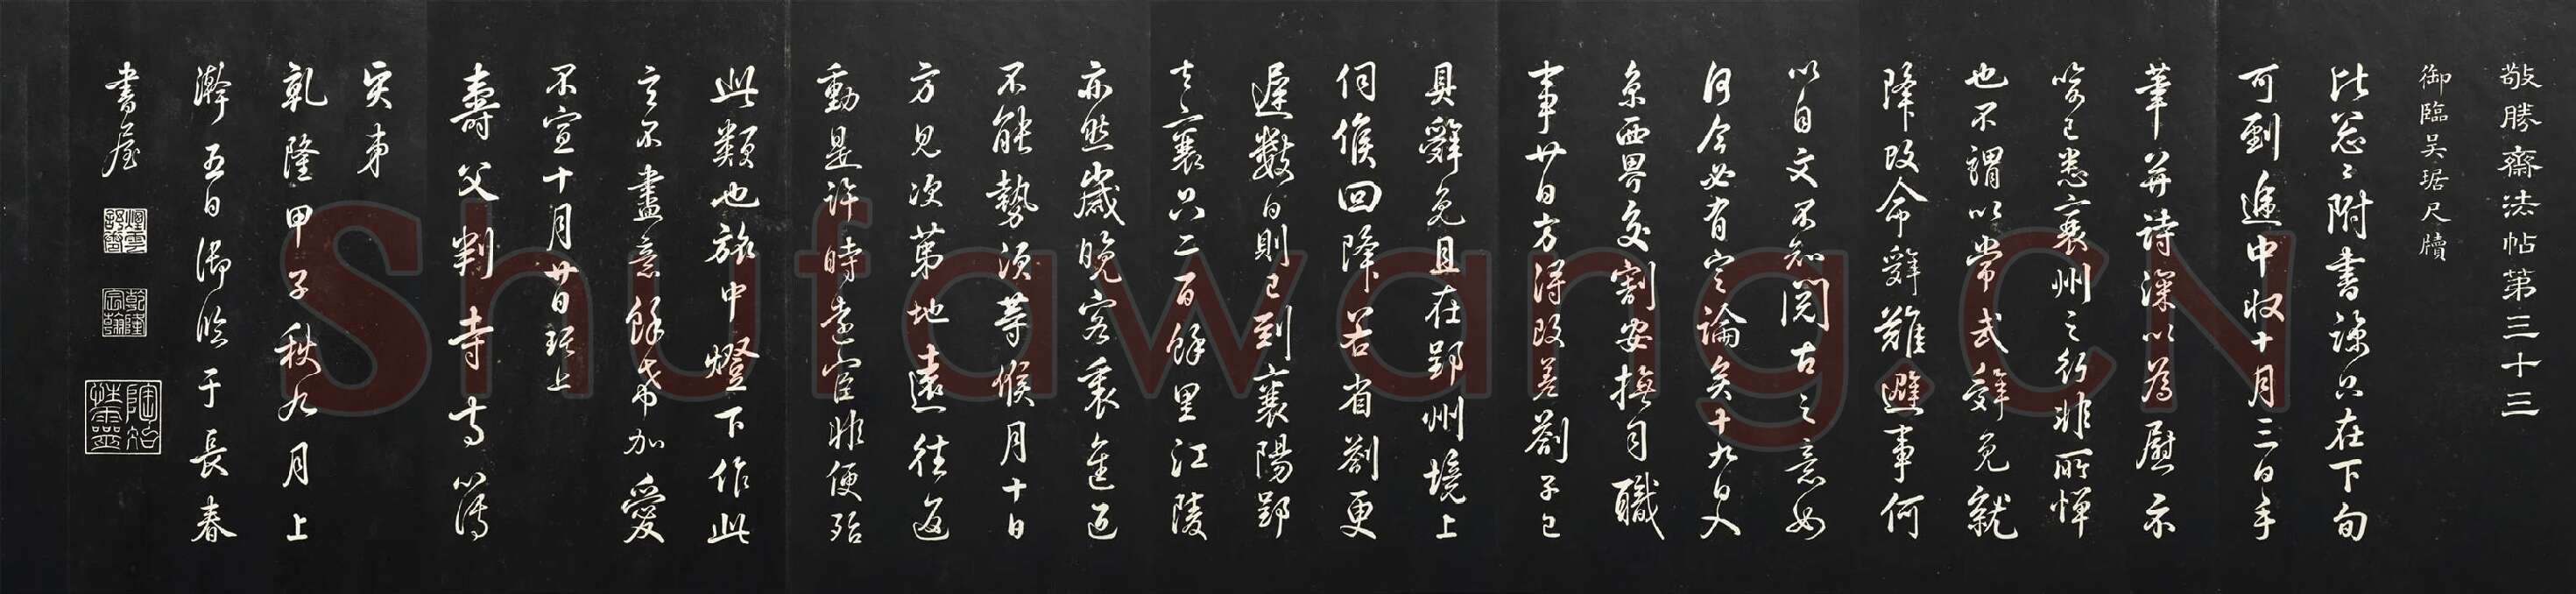 敬勝齋法帖第三十三
御臨吳琚尺牘
比忩〻附書諒只在下旬
可到遞中收十月三日手
筆并詩深以為慰示
喻已悉襄州之行非所憚
也不謂以常武辭免就
降改命辭難避事何
以自文不知閱古之意如
何今必有定論矣十九日入
京西界交割安撫司職
事廿日方得改差劄子已
具辭免且在郢州境上
伺候回降若省劄更
遲數日則已到襄陽郢
去襄只二百餘里江陵
亦然歲晚客裏進退
不能勢須等候月十日
方見次第地遠往返
動是許時遠宦非便殆
此類也旅中燈下作此
言不盡意餘希加愛
不宣十月廿日琚上
壽父判寺寺簿
乾隆甲子秋九月上
澣五日御臨于長春
書屋
乾隆宸翰
陶冶性靈
Shufawang.CN